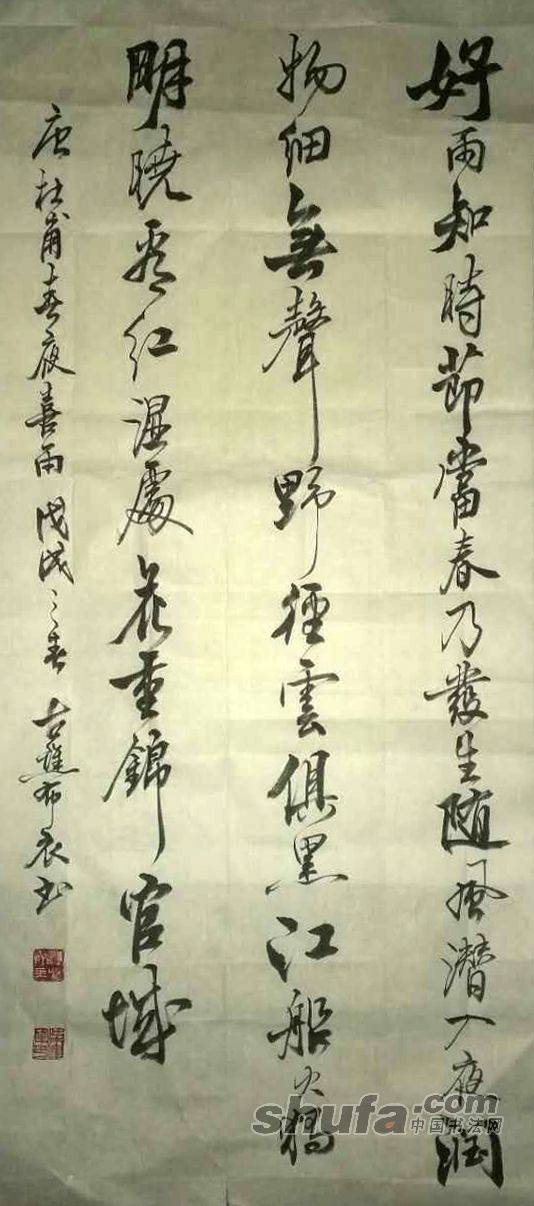 好雨知時節當春乃發生随風潜入夜潤
物细無聲野徑雲俱黑江船火獨
明曉看红湿處花重錦官城
唐杜甫春夜喜雨 戊戌之春 古布衣书
shufa.com
中国书法网